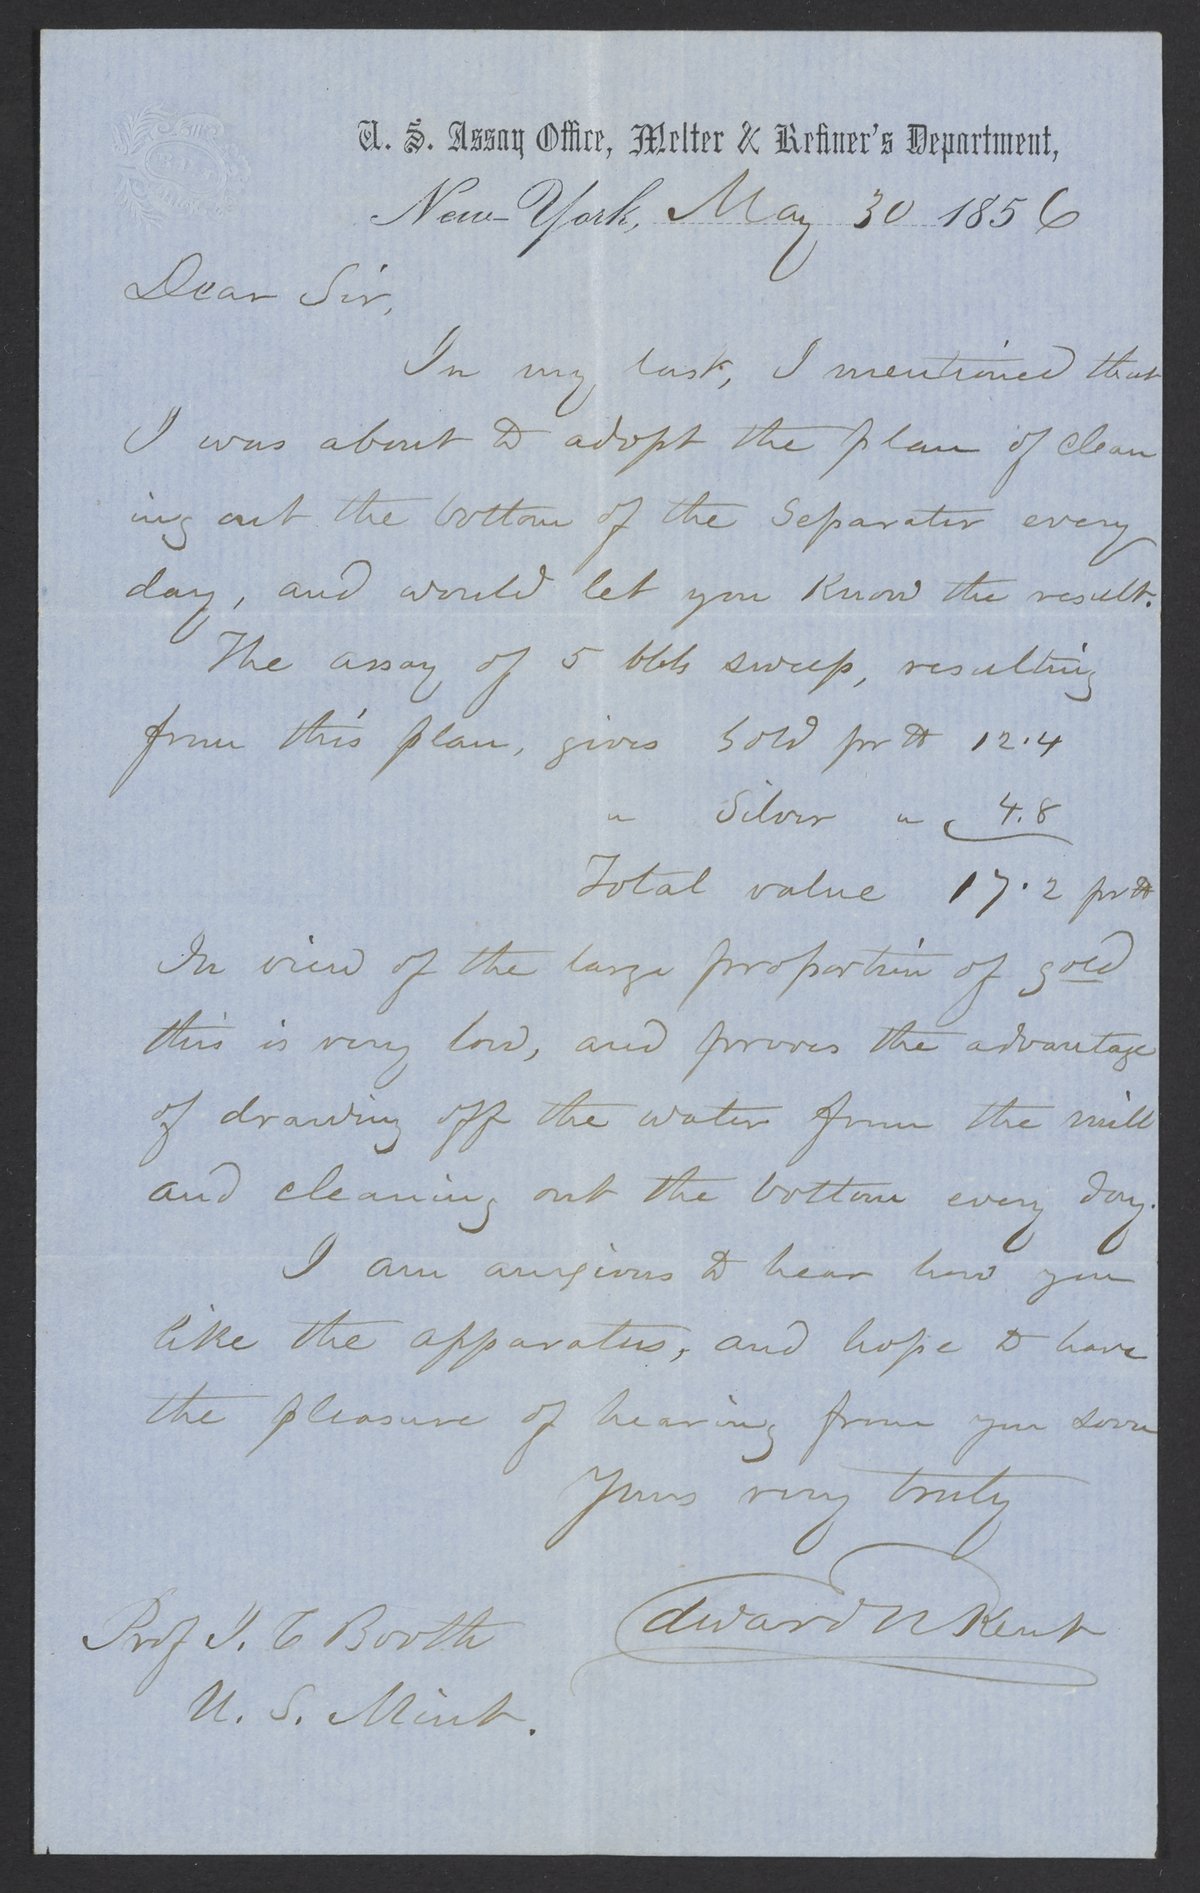 U. S. Assay Office, Melter & Refiner's Department,
New-York, May 30 1856
Dear Sir,
In my last, I mentioned that
I was about to adopt the plan of clean
ing out the bottom of the Separator every
day, and would let you know the result.
The assay of 5 bbls sweep, resulting
from this plan, gives Gold pr lb 12.4
" Silver " 4.8
Total value 17.2 pr lb
In view of the large proportion of gold
this is very low, and proves the advantage
of drawing off the water from the mill
and cleaning out the bottom every day.
I am anxious to hear how you
like the apparatus, and hope to have
the pleasure of hearing from you soon
Yours very truly
Edward N Kent
Prof J. C Booth
U. S. Mint.